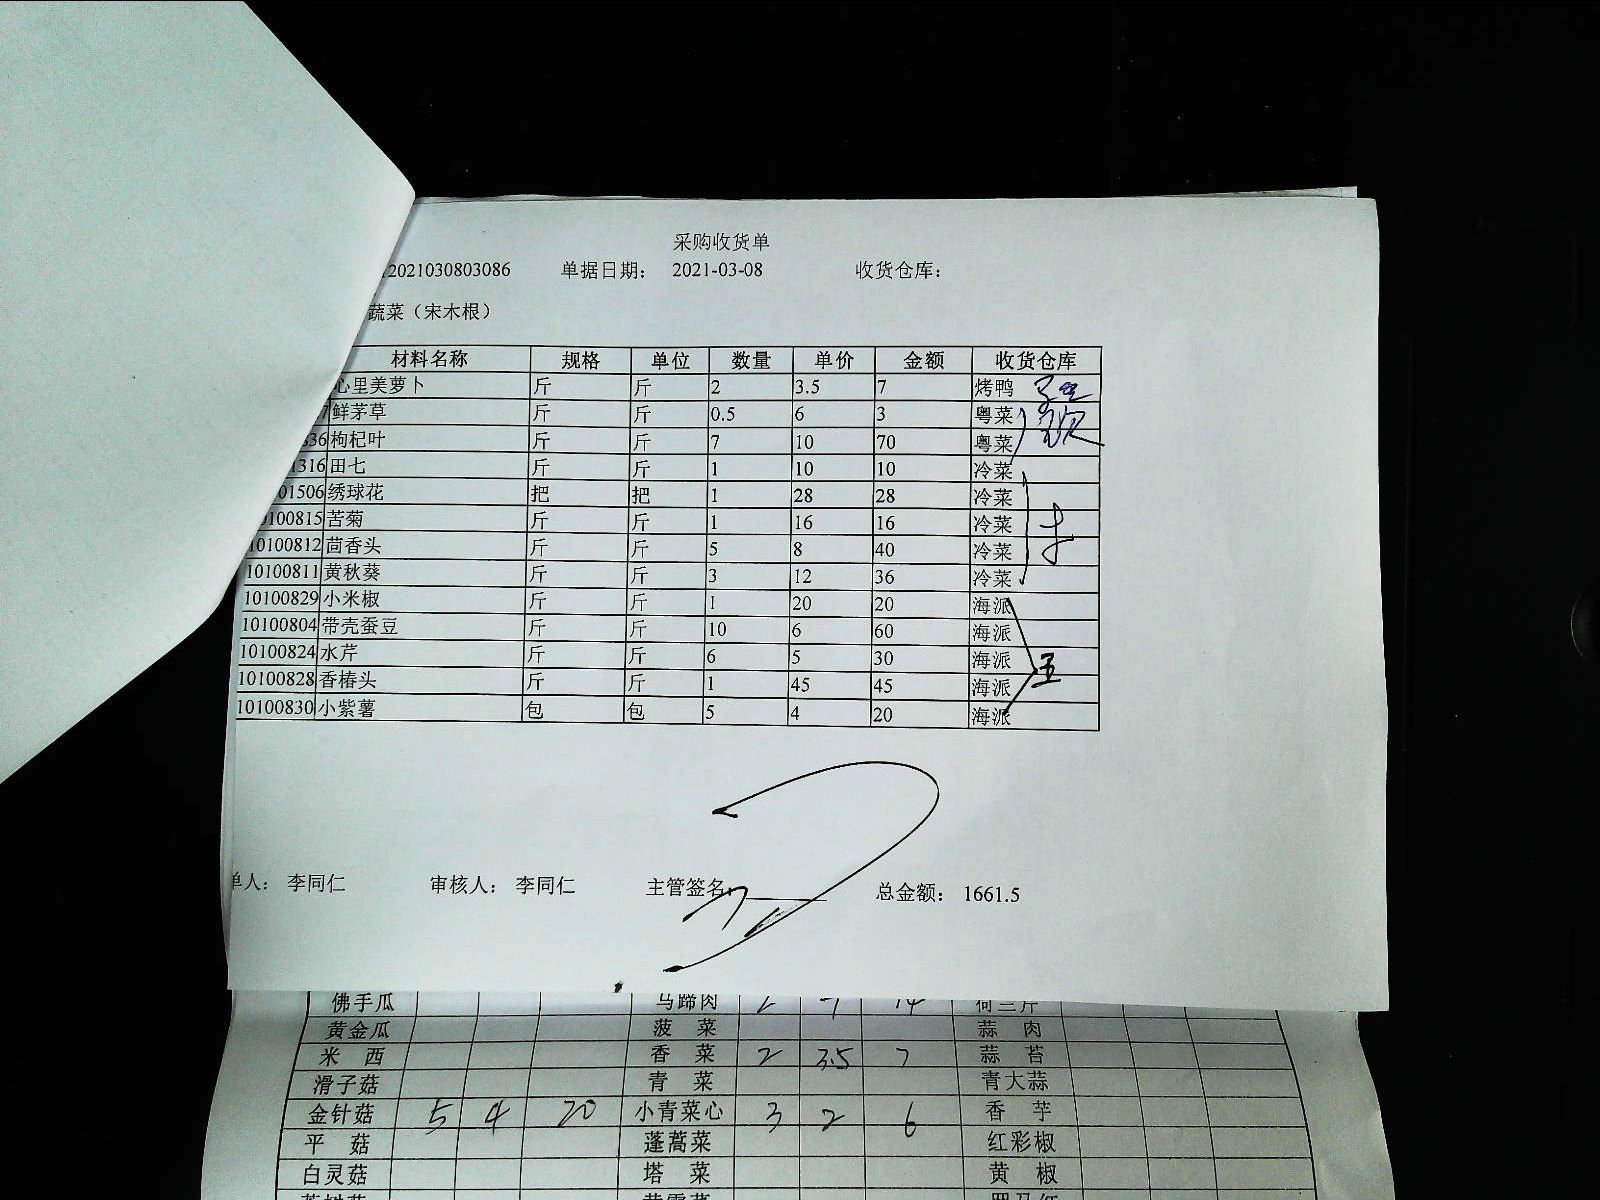 采购收货单
2021030803086 单据日期： 2021-03-08 收货仓库：
蔬菜（宋木根）
材料名称 规格 单位 数量 单价 金额 收货仓库
心里美萝卜 斤 斤 2 3.5 7 烤鸭
7 鲜茅草 斤 斤 0.5 6 3 粤菜
336 枸杞叶 斤 斤 7 10 70 粤菜
1316 田七 斤 斤 1 10 10 冷菜
01506 绣球花 把 把 1 28 28 冷菜
0100815 苦菊 斤 斤 1 16 16 冷菜
10100812 茴香头 斤 斤 5 8 40 冷菜
10100811 黄秋葵 斤 斤 3 12 36 冷菜
10100829 小米椒 斤 斤 1 20 20 海派
10100804 带壳蚕豆 斤 斤 10 6 60 海派
10100824 水芹 斤 斤 6 5 30 海派
10100828 香椿头 斤 斤 1 45 45 海派
10100830 小紫薯 包 包 5 4 20 海派
单人： 李同仁 审核人： 李同仁 主管签名： 总金额： 1661.5
佛手瓜 马蹄肉 2 7 14 荷兰芹
黄金瓜 菠菜 蒜肉
米西 香菜 2 3.5 7 蒜苔
滑子菇 青菜 青大蒜
金针菇 5 4 20 小青菜心 3 2 6 香芋
平菇 蓬蒿菜 红彩椒
白灵菇 塔菜 黄椒